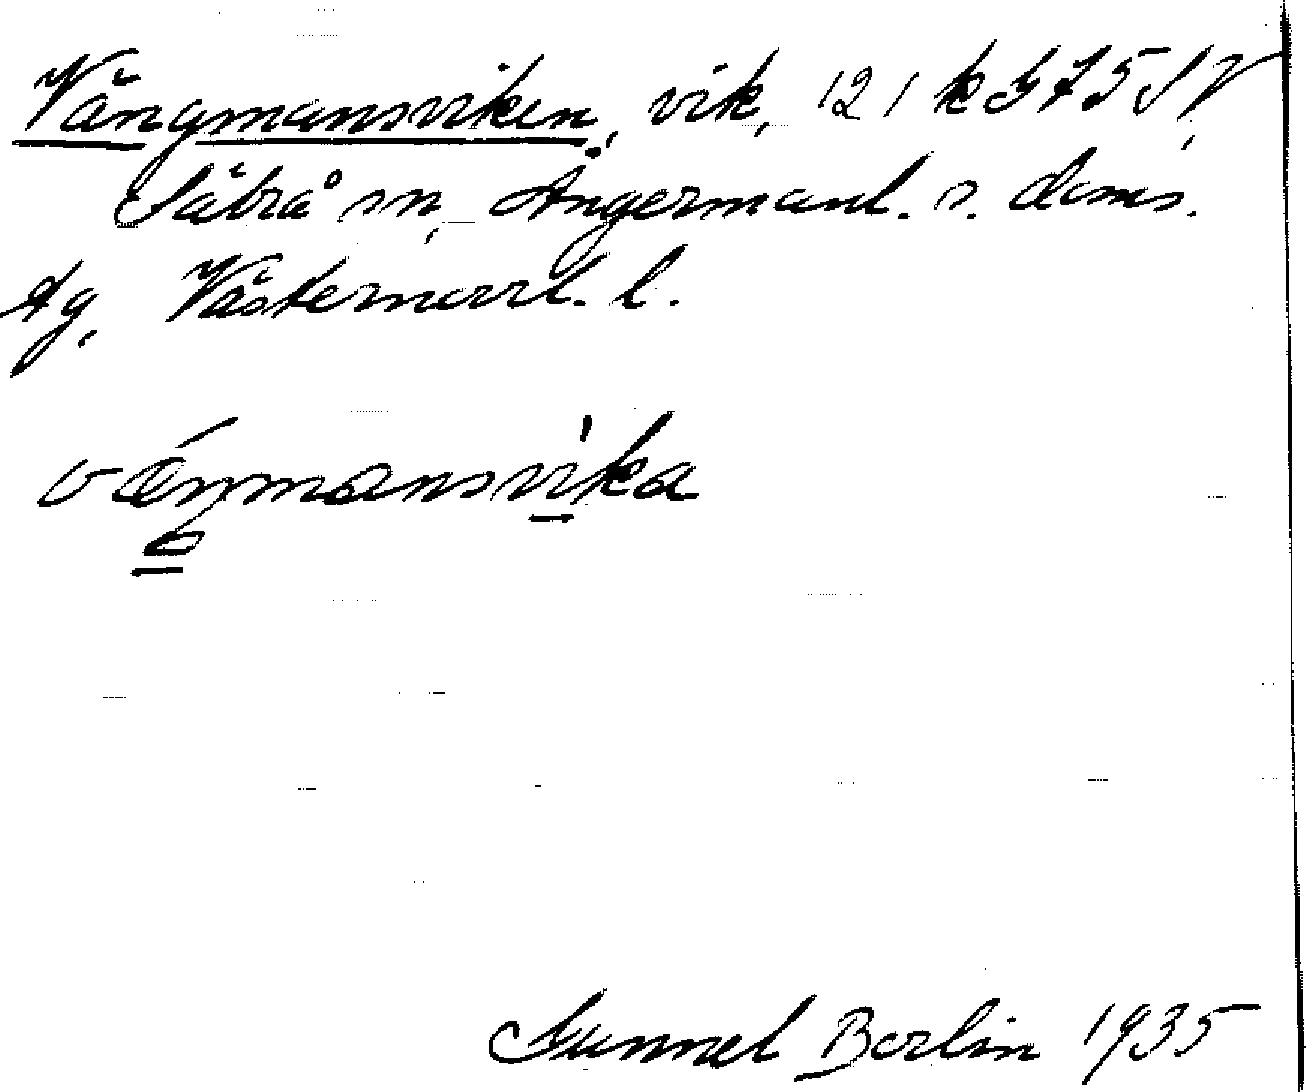 Vängmansviken, vik, 121 k G75 SV,
Säbrå sn, Ångermanl. s. doms.
Ag, Västernorrl. l.
væŋmansvika
Gunnel Berlin 1935